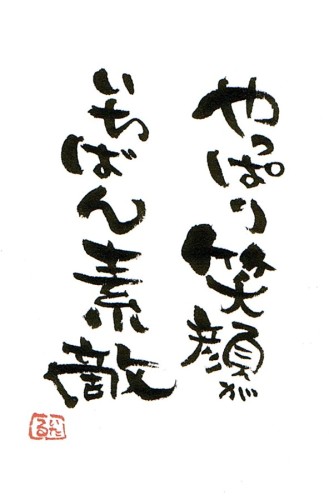 やっぱり笑顔が
いちばん素敵